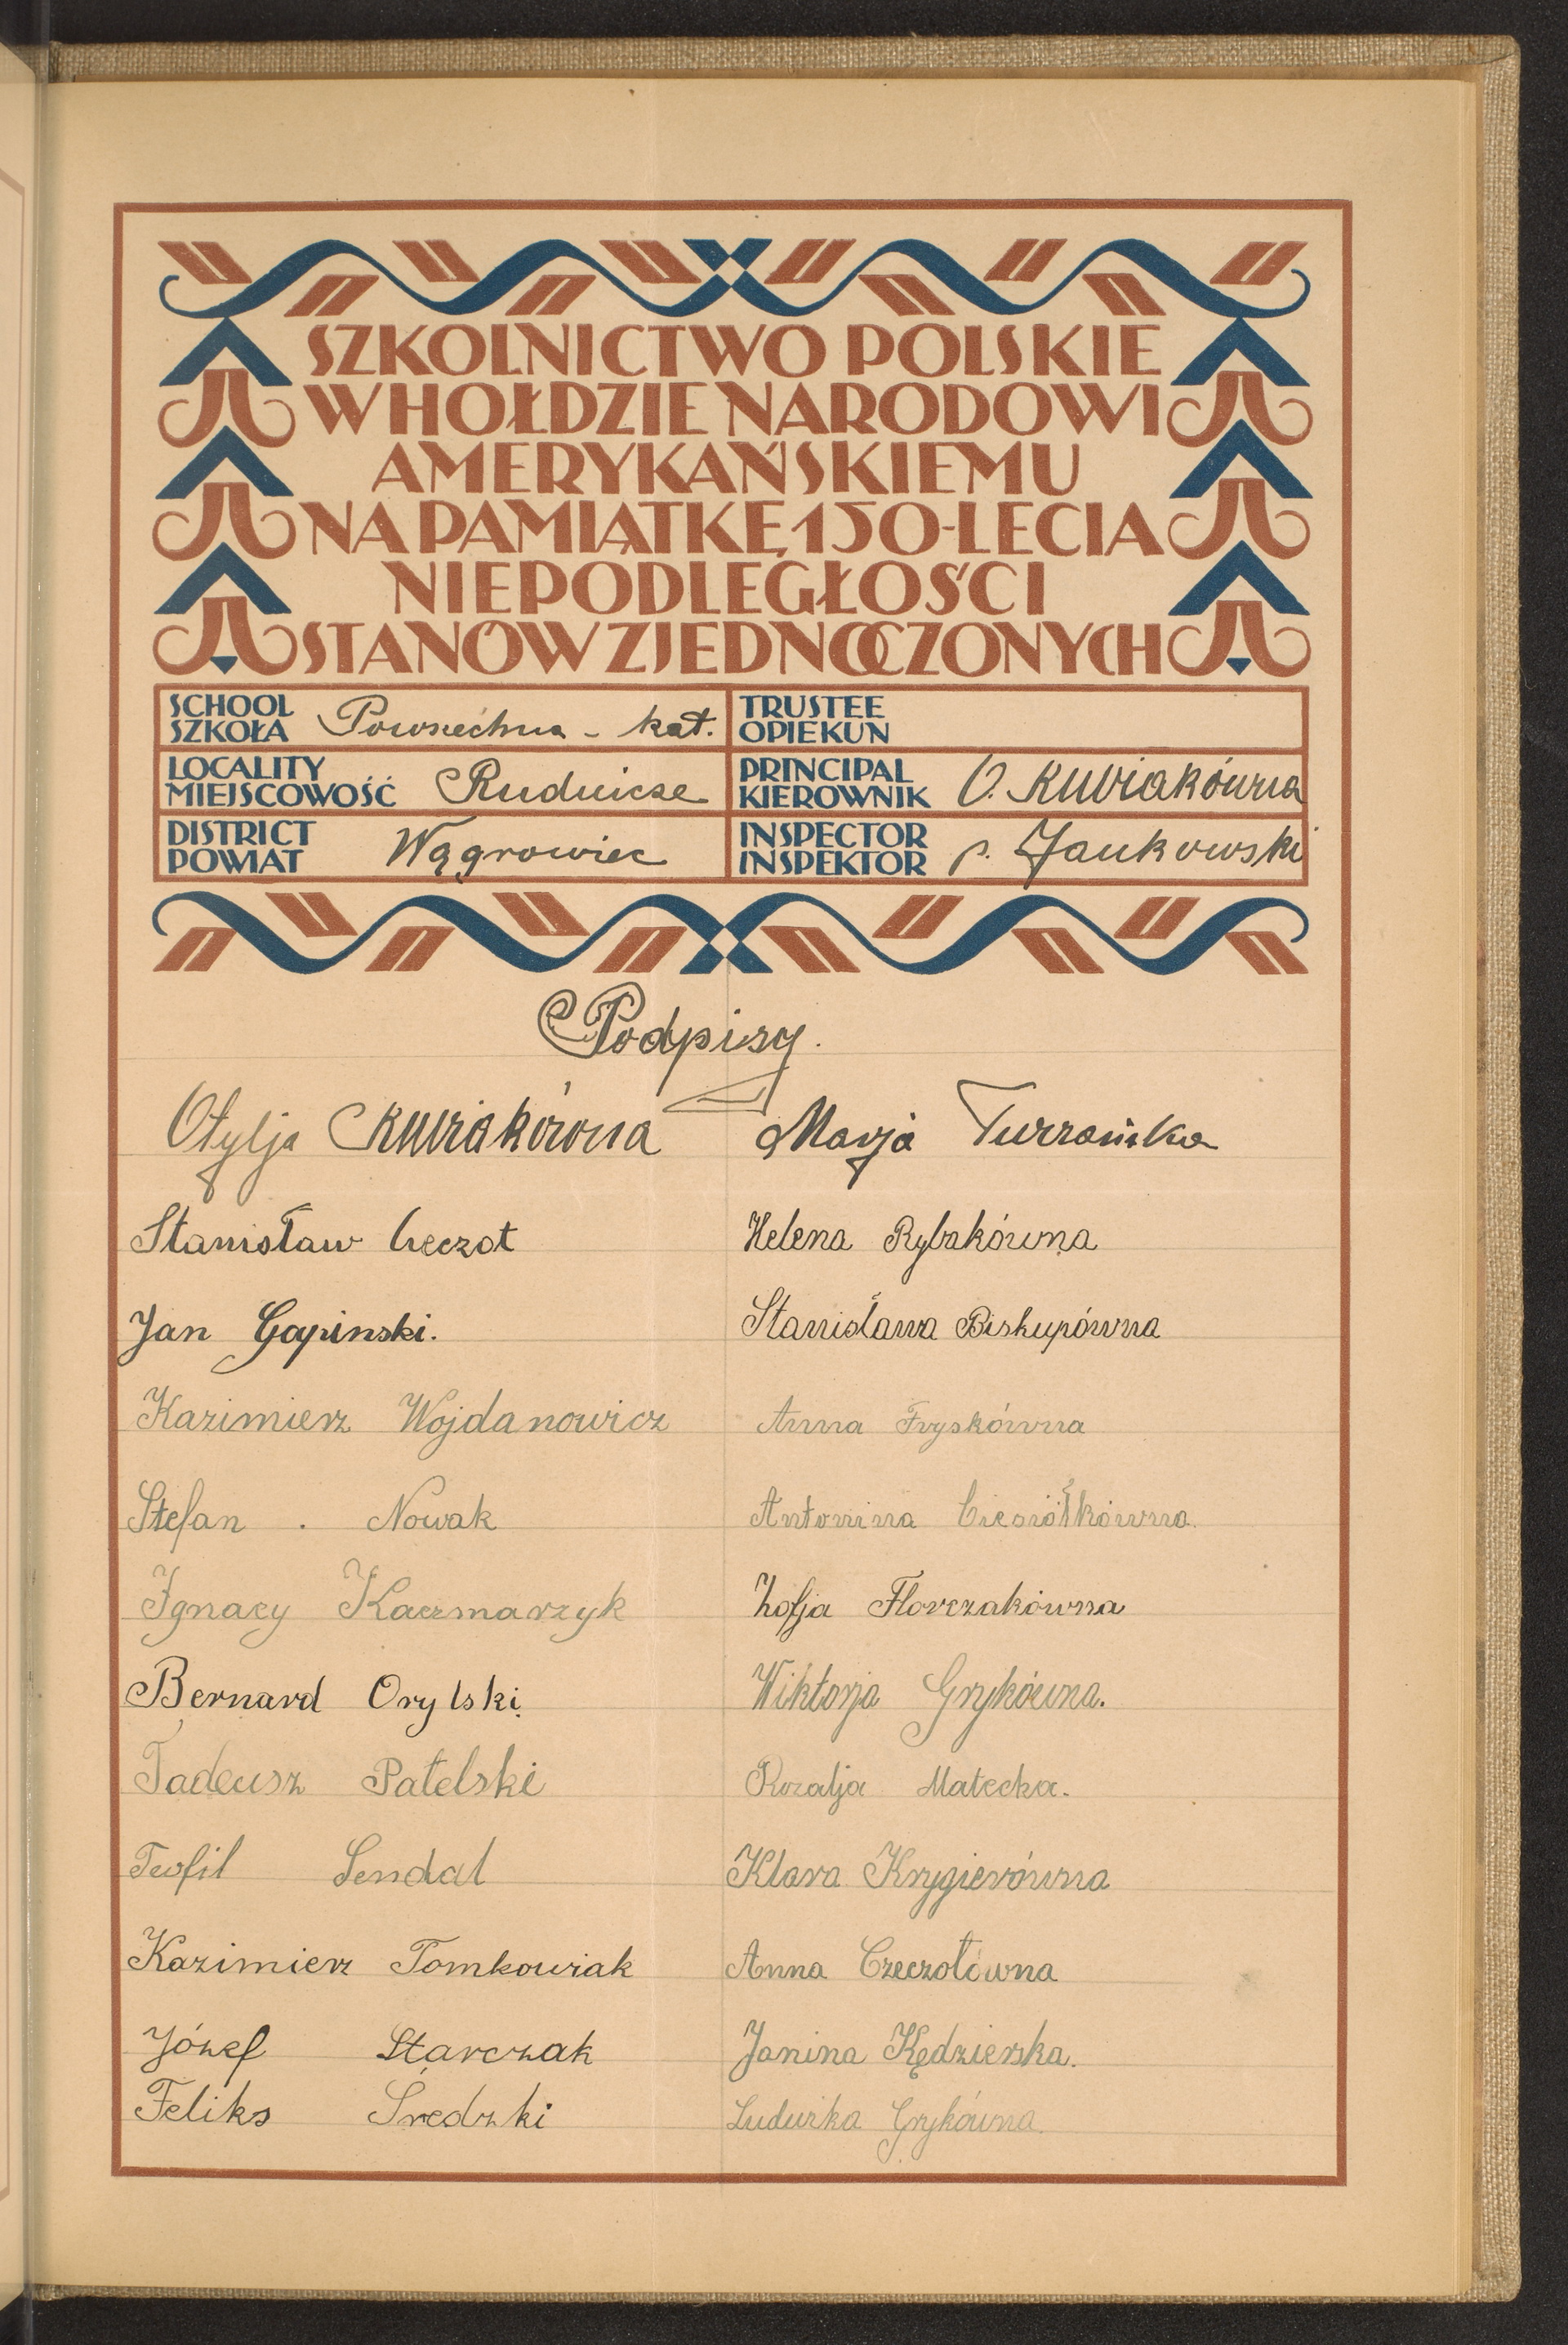 SZKOLNICTWO POLSKIE
W HOŁDZIE NARODOWI
AMERYKAŃSKIEMU
NA PAMIĄTKĘ 150-LECIA
NIEPODLEGŁOŚCI
STANÓW ZJEDNOCZONYCH
SCHOOL
SZKOŁA Powszechna - kat.
TRUSTEE
OPIEKUN
LOCALITY
MIEJSCOWOŚĆ Rudnicze
PRINCIPAL
KIEROWNIK O. Kubiakówna
DISTRICT
POWIAT Wągrowiec
INSPECTOR
INSPEKTOR p. Jankowski
Podpisy.
Otylja Kubiakówna Marja
Stanisław Helena Rybakówna
Jan Gapinski. Stanisława Biskupówna
Kazimierz Wojdanowicz Anna Fryskówna
Stefan . Nowak Antonina Ciesiółkówna.
Ignacy Kaczmarzyk Zofja Florczakówna
Bernard Orylski Wiktorja Grykówna.
Tadeusz Patelski Rozalja Małecka.
Teofil Sendal Klara Krygierówna
Kazimierz Tomkowiak Anna Czeczotówna
Józef Starczak Janina Kędzierska.
Feliks Średzki Ludwika Grykówna.